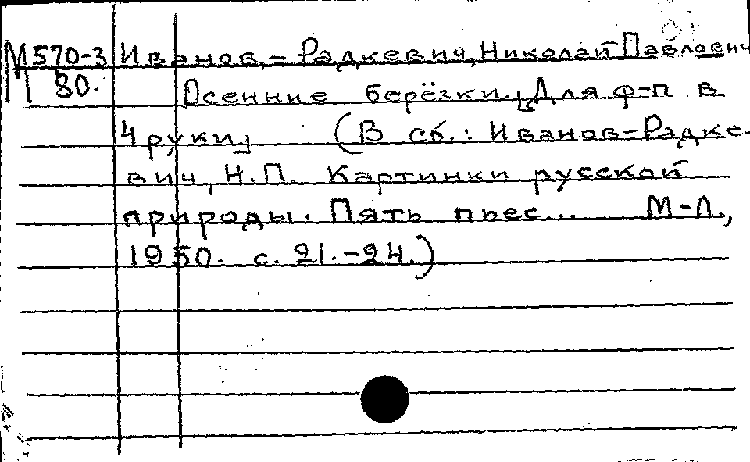 М570-3 Иванов-Радкевич, Николай Павлович
80. Осенние берёзки. [Для ф-п в
4 руки] (В сб.: Иванов-Радке-
вич, Н.П. Картинки русской
природы. Пять пьес... М-Л.,
1950. с. 21.-24.)